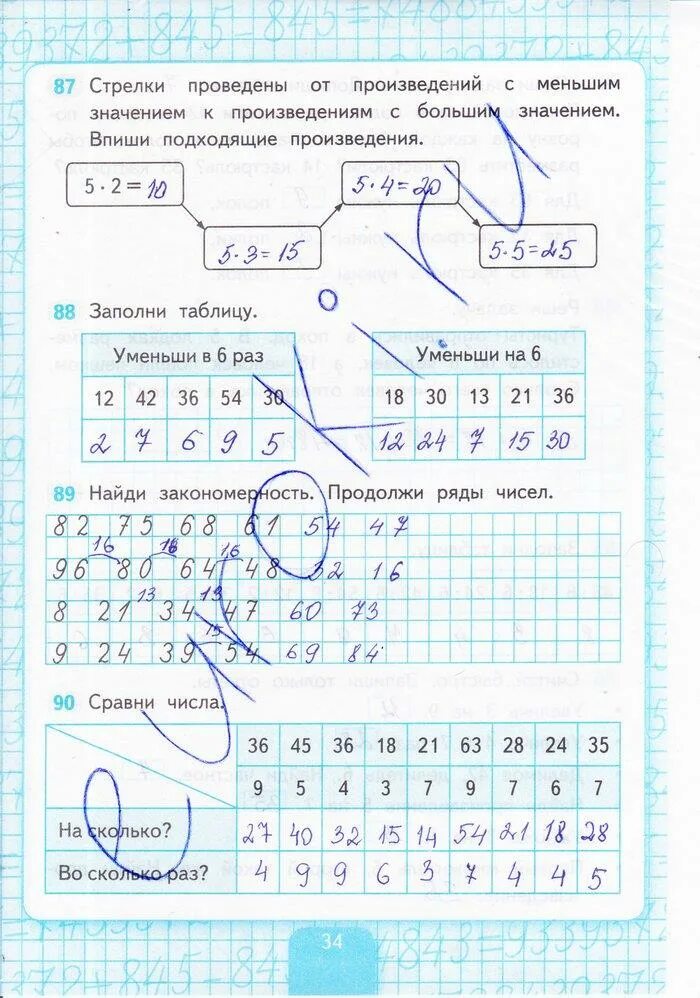 87 Стрелки проведены от произведений с меньшим
значением к произведениям с большим значением.
Впиши подходящие произведения.
5 · 2 = 10
5 · 4 = 20
5 · 3 = 15
5 · 5 = 25
88 Заполни таблицу.
Уменьши в 6 раз Уменьши на 6
12 42 36 54 30 18 30 13 21 36
2 7 6 9 5 12 24 7 15 30
89 Найди закономерность. Продолжи ряды чисел.
82 75 68 61 54 47
16 16 16
96 80 64 48 32 16
13 13
8 21 34 47 60 73
15
9 24 39 54 69 84
90 Сравни числа.
36 45 36 18 21 63 28 24 35
9 5 4 3 7 9 7 6 7
На сколько? 27 40 32 15 14 54 21 18 28
Во сколько раз? 4 9 9 6 3 7 4 4 5
34